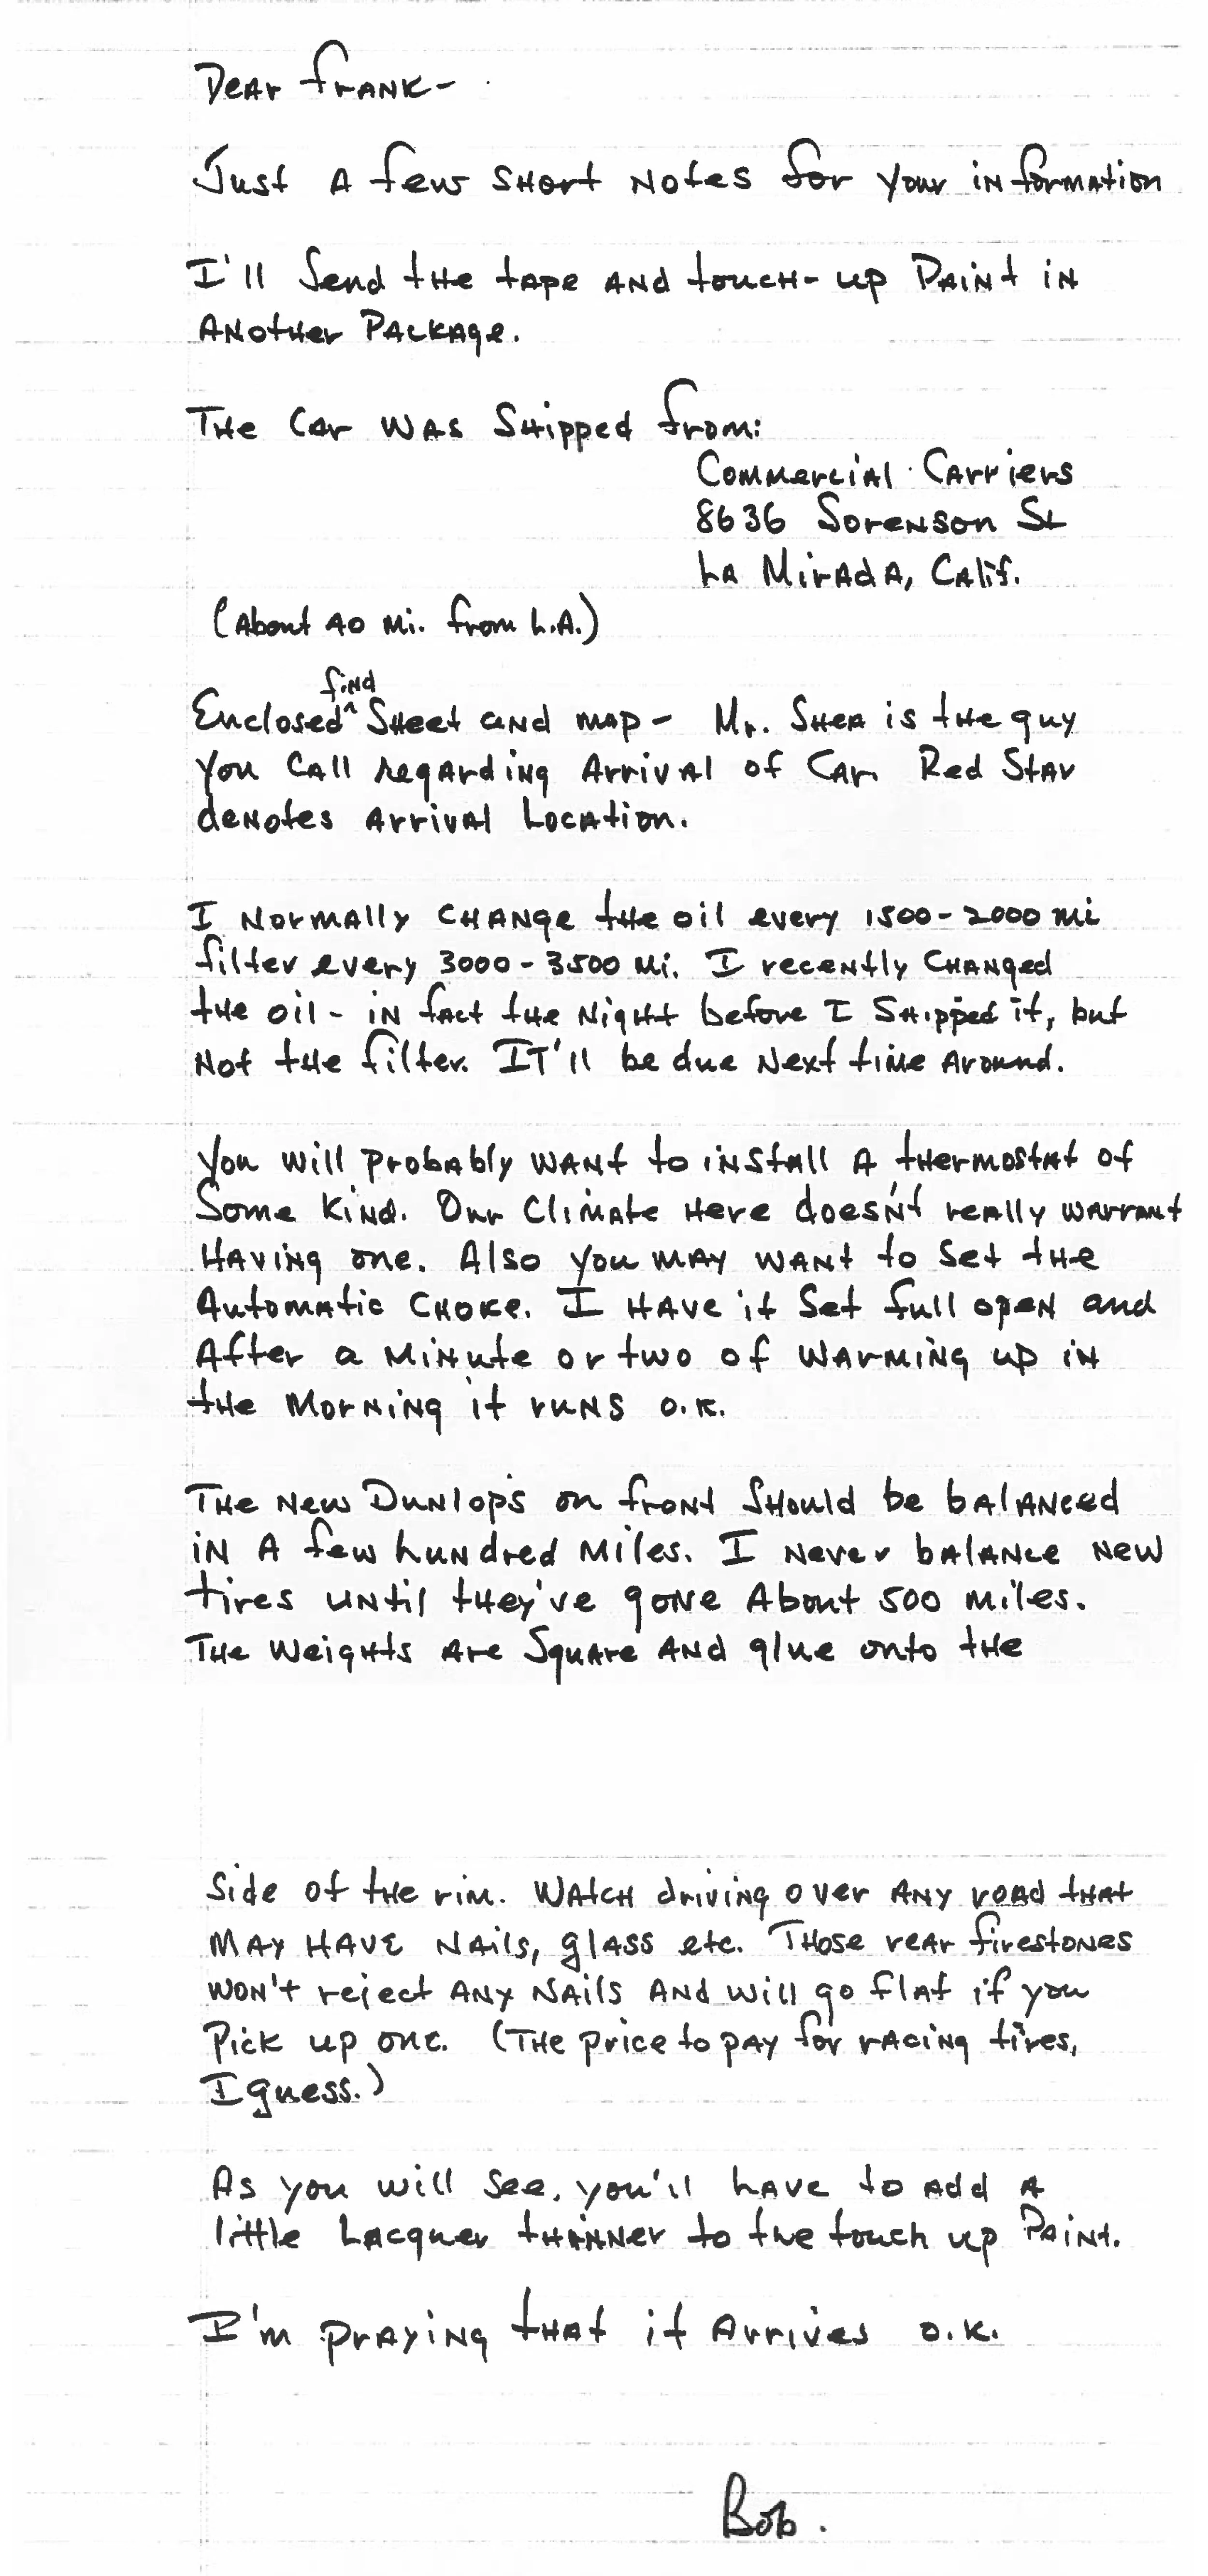 Dear Frank-
Just a few short notes for your information
I'll send the tape and touch-up paint in
another package.
The car was shipped from:
Commercial Carriers
8636 Sorenson St
La Mirada, Calif.
(About 40 mi. from L.A.)
find
Enclosed^ sheet and map - Mr. Shea is the guy
you call regarding arrival of car. Red Star
denotes arrival location.
I normally change the oil every 1500-2000 mi
filter every 3000-3500 mi. I recently changed
the oil - in fact the night before I shipped it, but
not the filter. IT'll be due next time around.
You will probably want to install a thermostat of
some kind. Our climate here doesn't really warrant
having one. Also you may want to set the
automatic choke. I have it set full open and
after a minute or two of warming up in
the morning it runs o.k.
The new Dunlop's on front should be balanced
in a few hundred miles. I never balance new
tires until they've gone about 500 miles.
The weights are square and glue onto the
side of the rim. Watch driving over any road that
may have nails, glass etc. Those rear firestones
won't reject any nails and will go flat if you
pick up one. (The price to pay for racing tires,
I guess.)
As you will see, you'll have to add a
little lacquer thinner to the touch up paint.
I'm praying that it arrives o.k.
Bob.